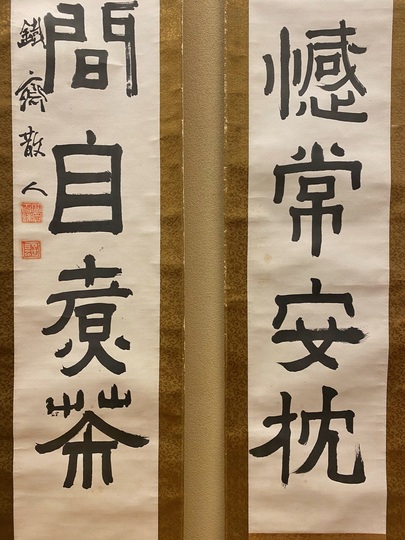 憾常安枕
間自煮茶
鐵齋散人